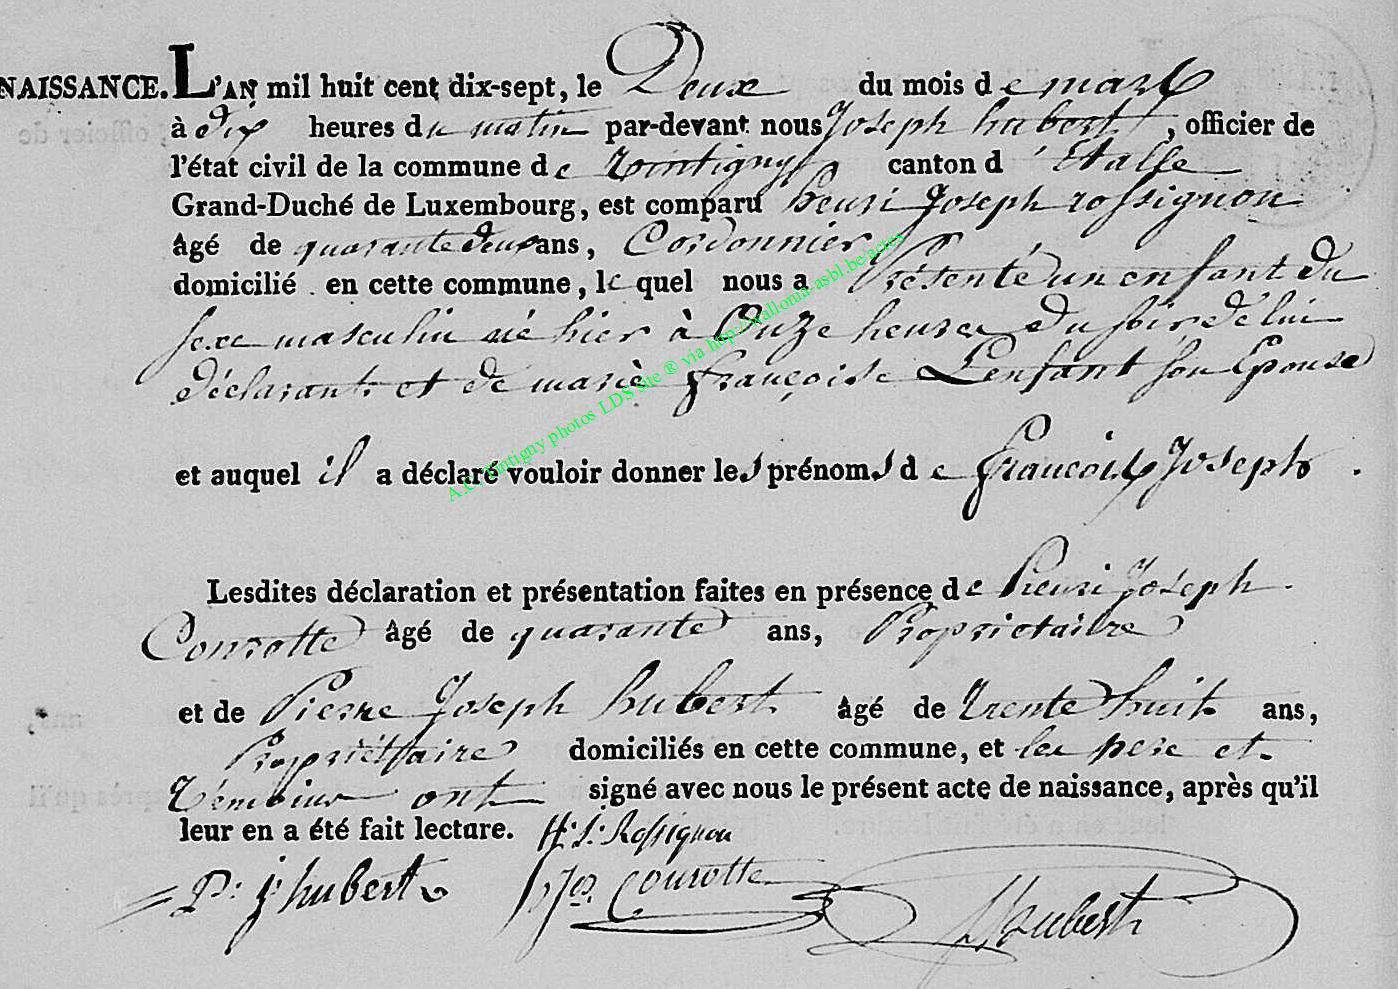 NAISSANCE. L'AN mil huit cent dix-sept, le Deux du mois de mars
à dix heures du matin par-devant nous Joseph hubert, officier de
l'état civil de la commune de tintigny canton d'Etalle
Grand-Duché de Luxembourg, est comparu henri Joseph rossignon
âgé de quarante deux ans, Cordonnier
domicilié en cette commune, lequel nous a Présenté un enfant du
sexe masculin né hier à Onze heures du soir de lui
déclarant et de marie françoise Lenfant son Epouse
et auquel il a déclaré vouloir donner les prénoms de francois Joseph.
Lesdites déclaration et présentation faites en présence de henri Joseph
Courotte âgé de quarante ans, Propriétaire
et de Pierre Joseph hubert âgé de trente huit ans,
Propriétaire domiciliés en cette commune, et les pere et
témoins ont signé avec nous le présent acte de naissance, après qu'il
leur en a été fait lecture. H: J: Rossignon
P: j: hubert hjos Courotte J hubert
A.C. Tintigny photos LDS Site ® via http://wallonia-asbl.be/actes